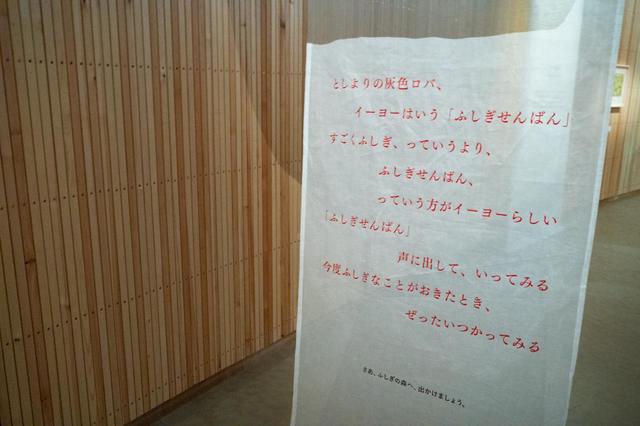 としよりの灰色ロバ、
イーヨーはいう「ふしぎせんばん」
すごくふしぎ、っていうより、
ふしぎせんばん、
っていう方がイーヨーらしい
「ふしぎせんばん」
声に出して、いってみる
今度ふしぎなことがおきたとき、
ぜったいつかってみる
さあ、ふしぎの森へ、出かけましょう。